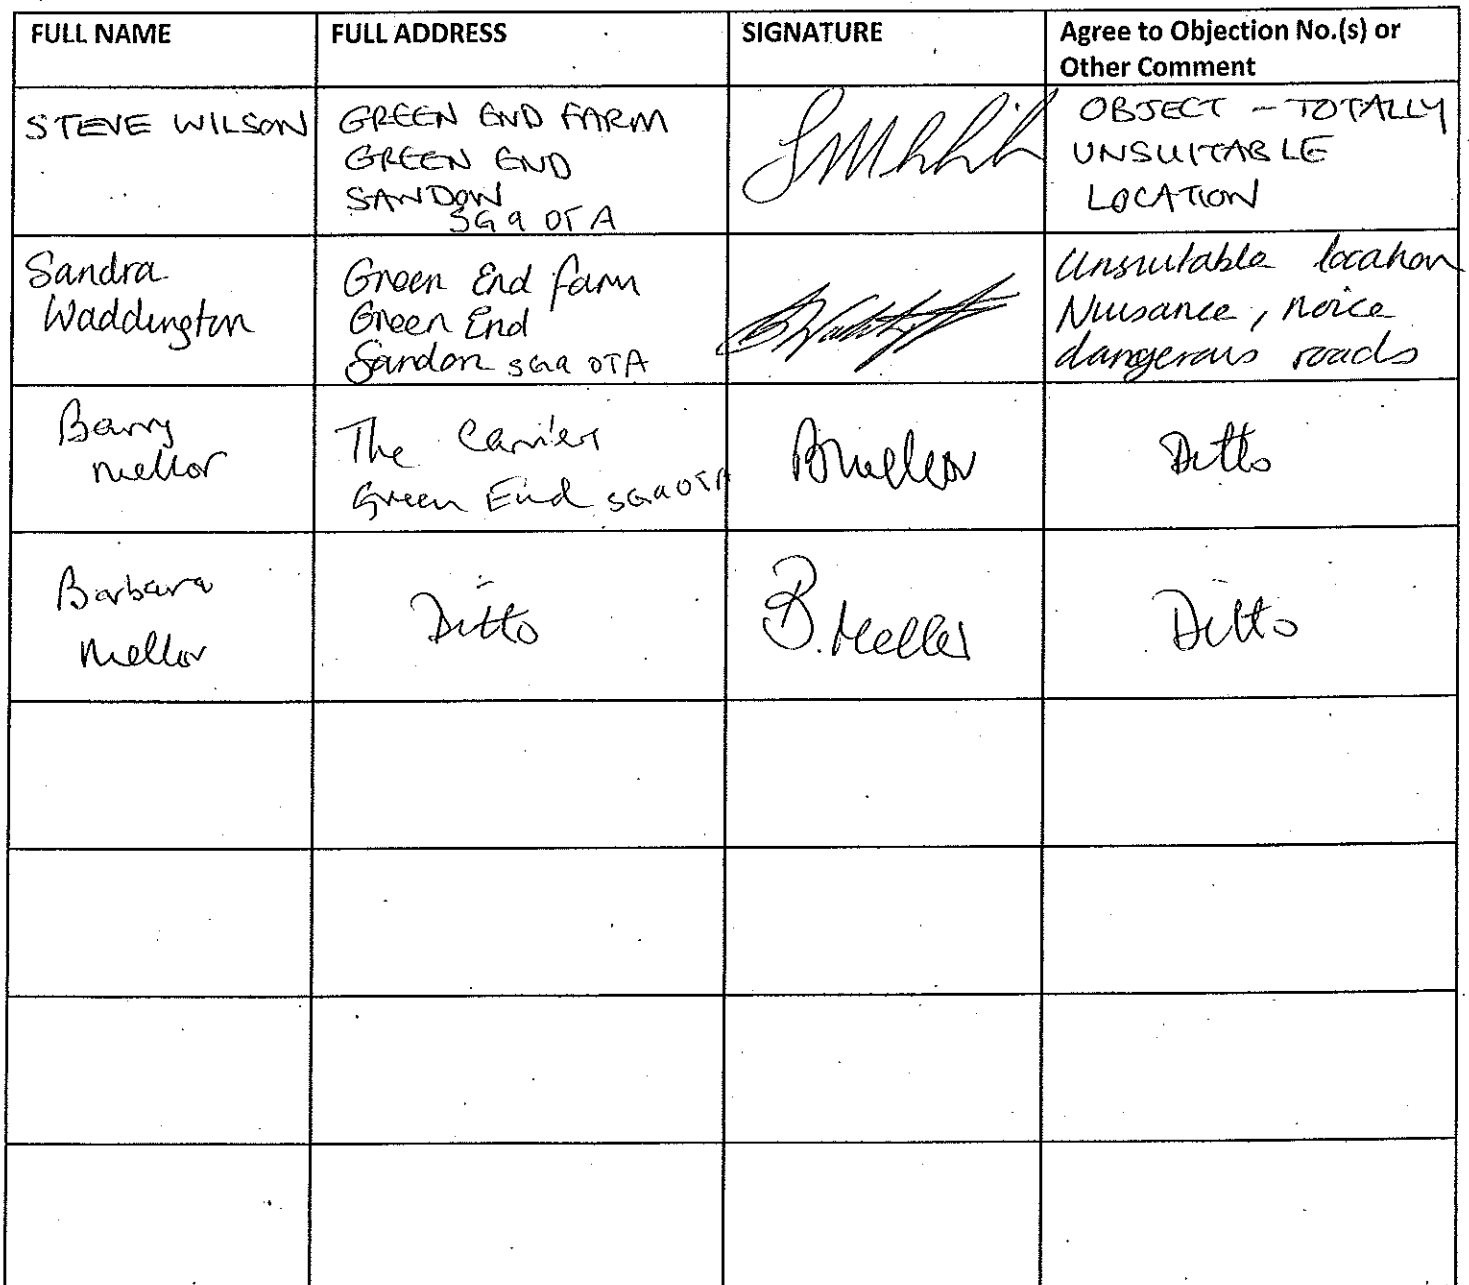 FULL NAME
FULL ADDRESS
SIGNATURE
Agree to Objection No.(s) or
Other Comment
STEVE WILSON
GREEN END FARM
GREEN END
SANDON
SG9 0TA
OBJECT – TOTALLY
UNSUITABLE
LOCATION
Sandra
Waddington
Green End farm
Green End
Sandon SG9 0TA
Unsuitable location
Nuisance, noice
dangerous roads
Barry
Mellor
The Carrier
Green End SG9 0TA
BMellor
Ditto
Barbara
Mellor
Ditto
B. Mellor
Ditto